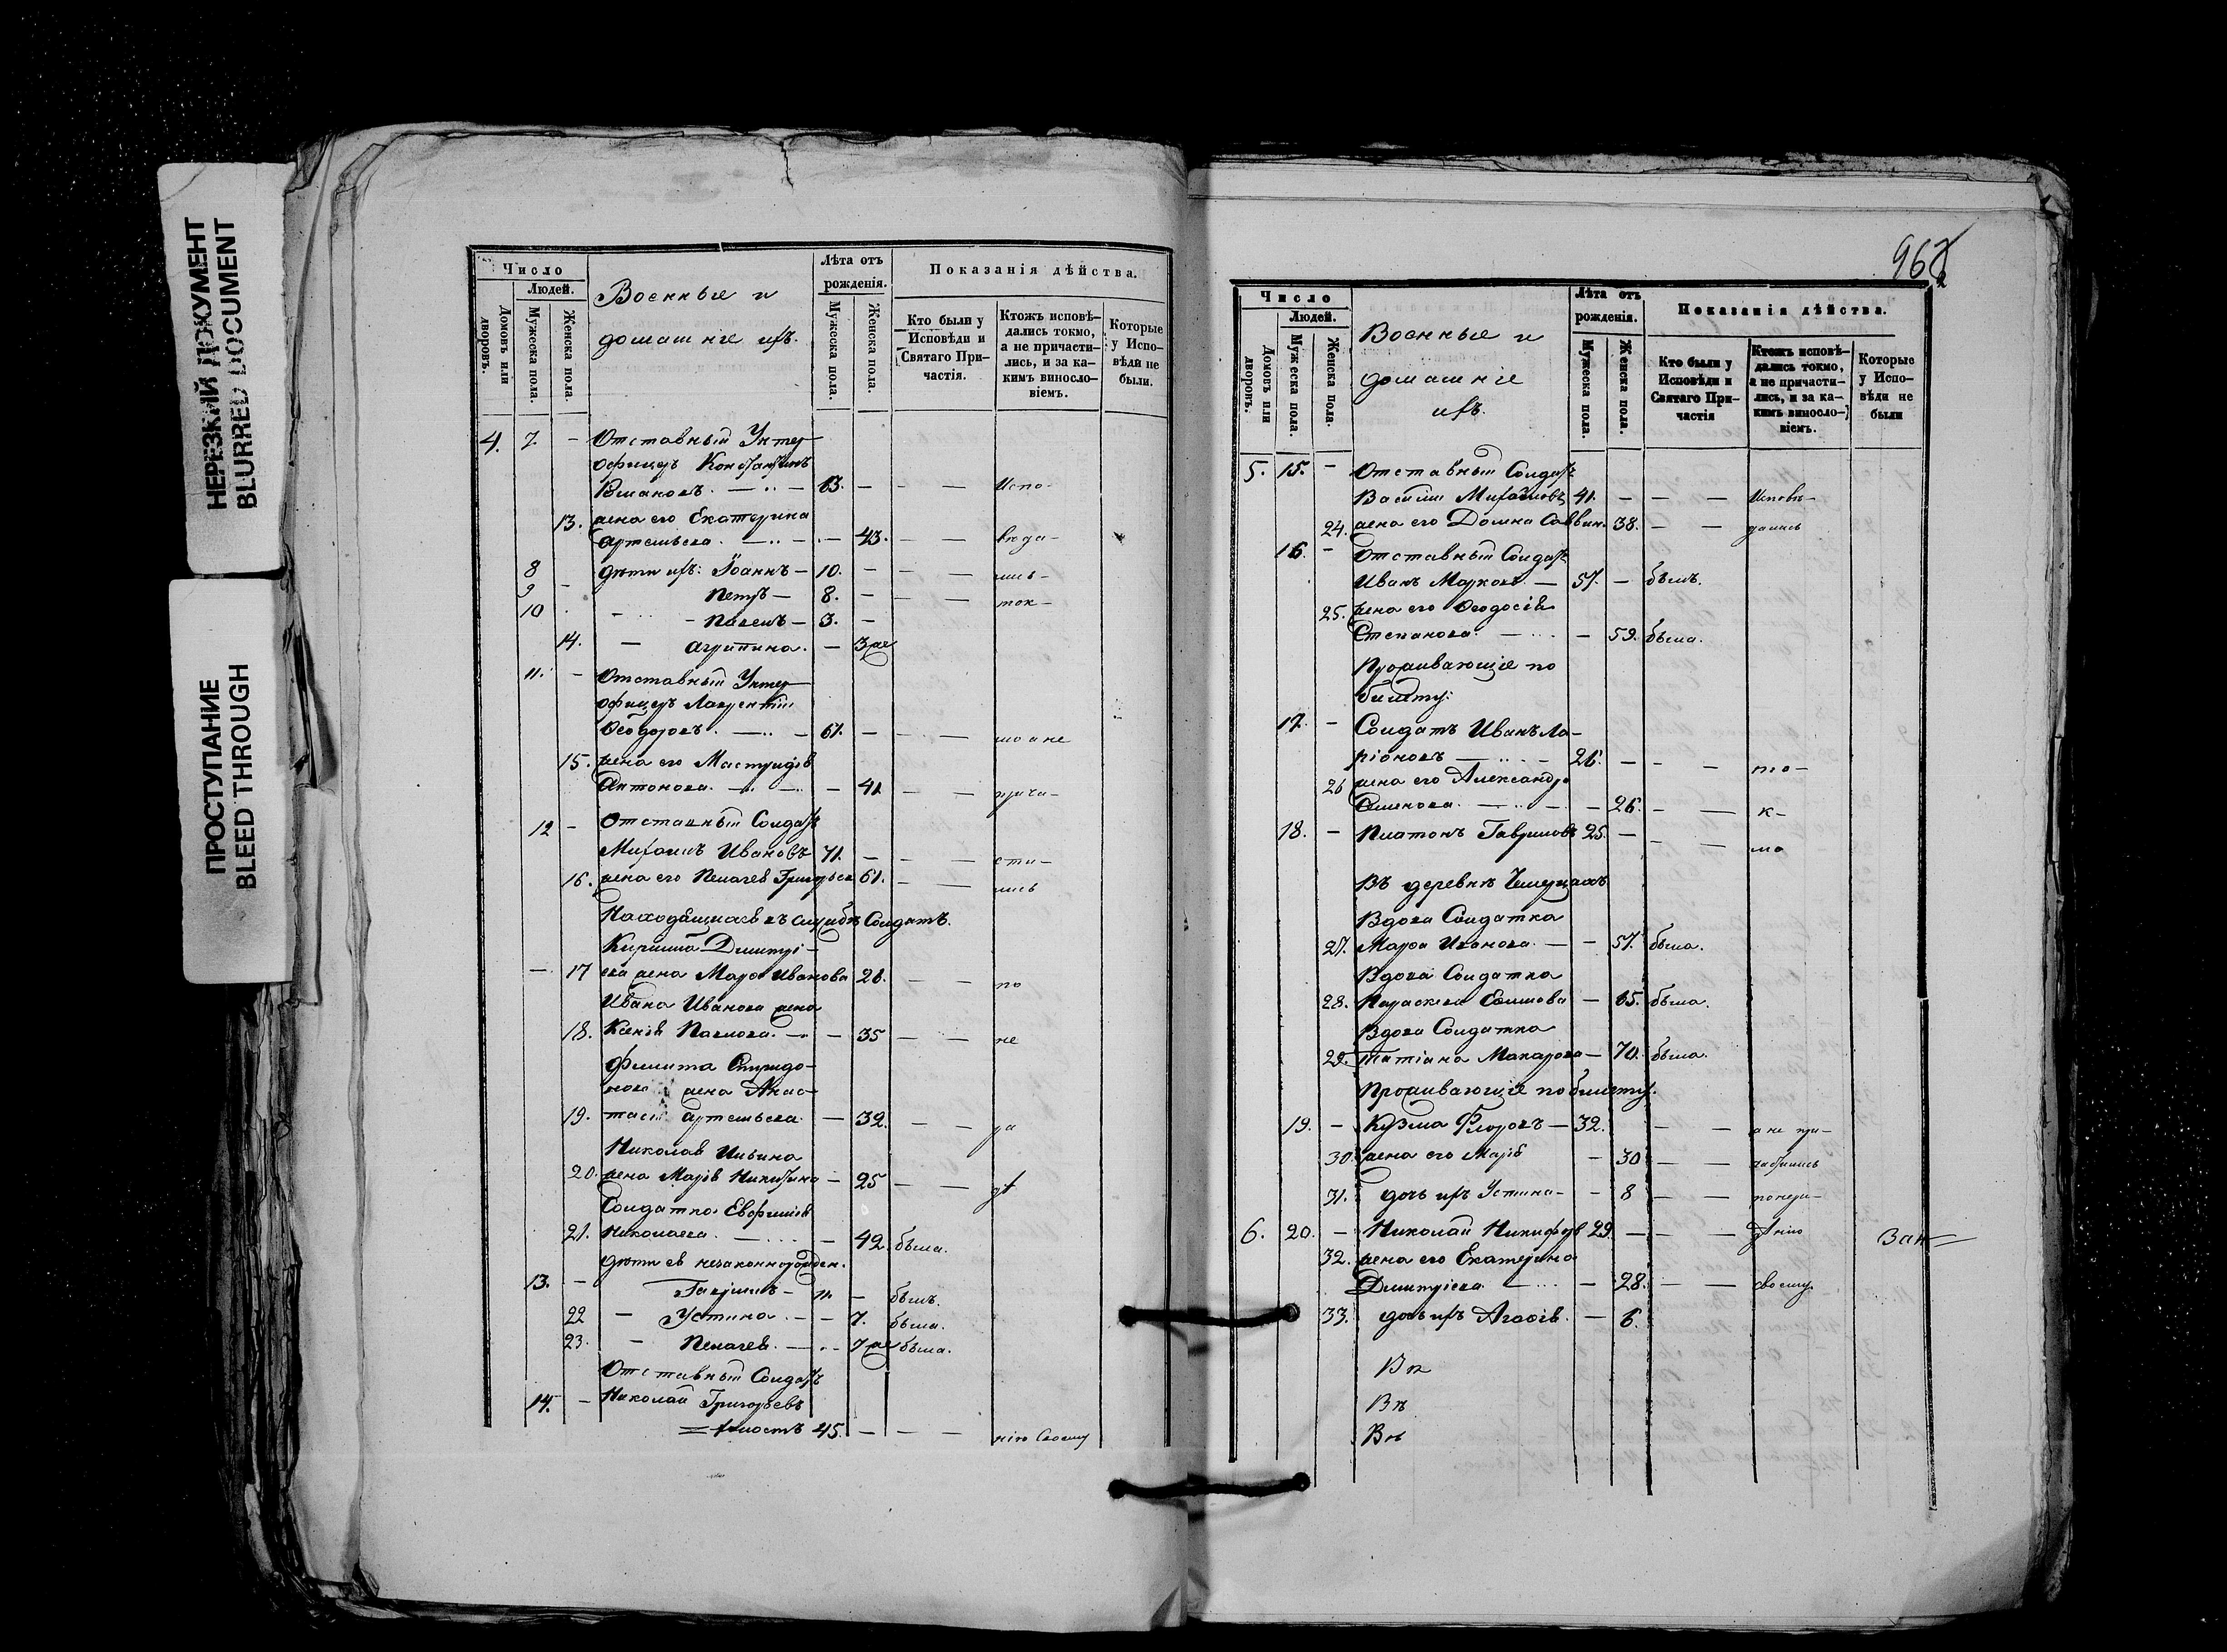 НЕРЕЗКИЙ ДОКУМЕНТ
BLURRED DOCUMENT
ПРОСТУПАНИЕ
BLEED THROUGH
Число
Людей.
Домовъ или дворовъ.
Мужеска пола.
Женска пола.
Военные и
домашніе ихъ.
Лѣта отъ рожденія.
Мужеска пола.
Женска пола.
Показанія дѣйства.
Кто были у Исповѣди и Святаго Причастія.
Ктожъ исповѣдались токмо, а не причастились, и за какимъ винословіемъ.
Которые у Исповѣди не были.
4. 7. – Отставный Унтер
офицеръ Константинъ
63. – – – Испо-
13. жена его Екатерина
Артемьева. – 43. – – вѣда-
8 дѣти ихъ: Іоаннъ – 10. – – – лись-
9 – Петръ – 8. – – – ток-
10 – Павелъ – 3. –
14. – Агрипина. – 3
11. – Отставный Унтер
офицеръ Лаврентій
Ѳеодоровъ. – 61. – – – мо а не
15. жена его Мастридія
Антонова. – 41 – – прича-
12 – Отставный Солдатъ
Михаилъ Ивановъ 71. – – – сти-
16. жена его Пелагея Григорьева 61. – – лись
Находящихся въ службѣ Солдатъ.
Кирилла Димитрі-
– 17 ева жена Марѳа Иванова 28. – – по
Ивана Иванова жена
18. Ксенія Павлова. – – 35 – – не
Филипа Спиридо-
нова жена Анас-
19. тасія Артемьева – 32. – – ра
Николая Ильина
20. жена Марія Никитина – 25 – – дѣ
Солдатка Евфимія
21. Николаева. – – 42. была.
дѣти ея незаконнорожден.
13. – Гавріилъ – 11. – былъ.
22 – Устина. – – 7. была.
23. – Пелагея. – 7 была.
Отставный Солдатъ
14. – Николай Григорьевъ
45. – – – нію Своему
968
Число
Людей.
Домовъ или дворовъ.
Мужеска пола.
Женска пола.
Военные и
домашніе
ихъ.
Лѣта отъ рожденія.
Мужеска пола.
Женска пола.
Показанія дѣйства.
Кто были у Исповѣди и Святаго Причастія
Ктожъ исповѣдались токмо, а не причастились, и за какимъ винословіемъ.
Которые у Исповѣди не были
5. 15. – Отставный Солдатъ
Василій Михайловъ 41. – – – Исповѣ-
24. жена его Домна Саввин. 38. – – дались
16. – Отставный Солдатъ
Иванъ Марковъ. – 57. – былъ.
25. жена его Ѳеодосія
Степанова. – – 59. была.
Проживающіе по
билету:
17. – Солдатъ Иванъ Ла-
ріоновъ – 26. – – – то-
26 жена его Александра
Семенова. – – 26. – – к-
18. – Платонъ Гавриловъ 25. – – – мо
Въ деревнѣ
Вдова Солдатка
27. Марѳа Иванова. – – 57. была.
Вдова Солдатка
28. Параскева – 65. была.
Вдова Солдатка
29. Татіана Макарова – 70. была.
Проживающіе по билету.
19. – Кузма Флоровъ – 32. – – а не при-
30. жена его Марія – 30 – – частились
31. дочь ихъ Устина – – 8 – – по нера-
6. 20. – Николай Никифор 29. – – – дѣнію
32. жена его Екатерина
Димитріева. – – 28. – – своему.
33. дочь ихъ Агаѳія. – 6.